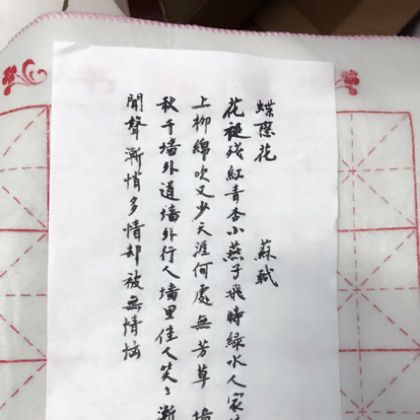 蝶恋花 蘇軾
花褪残紅青杏小燕子飛時緑水人家
上柳綿吹又少天涯何處無芳草墻
秋千墻外道墻外行人墻里佳人笑〻漸
聞聲漸悄多情却被無情惱